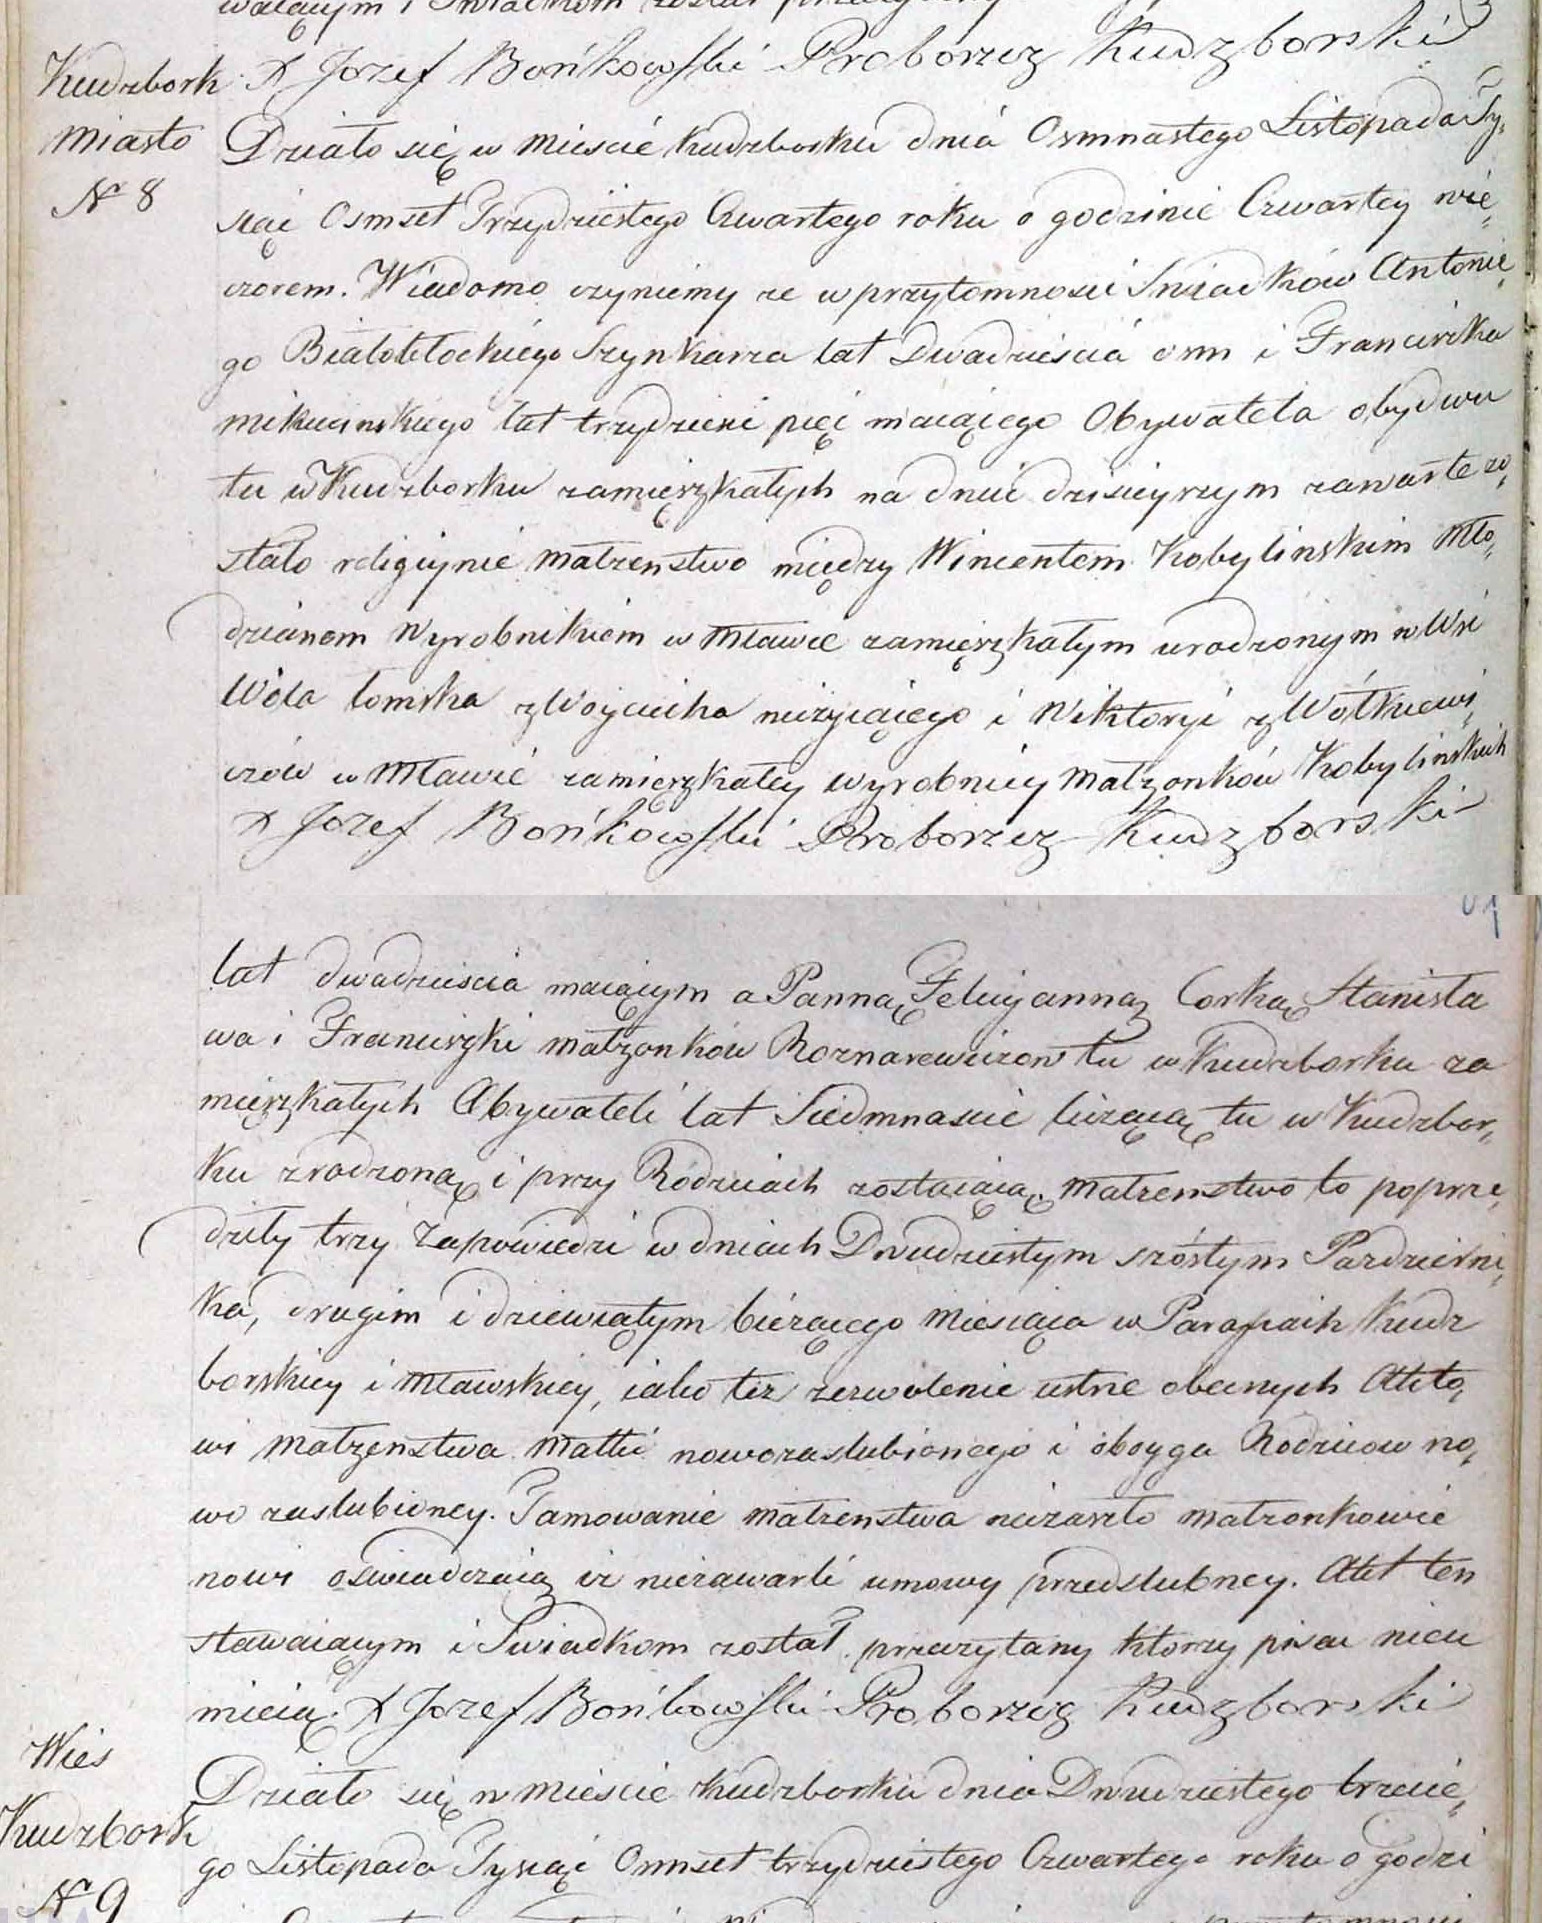 X Jozef Bońkowski Proboszcz Kudzborski
Kudzbork
Miasto
N 8
Działo się w Mieście Kudzborku dnia Osmnastego Listopada Ty,
siąc Osmset Trzydziestego Czwartego roku o godzinie Czwartey wie,
czorem. Wiadomo czyniemy ze w przytomnosci Swiadków Antonie,
go Białobłockiego Szynkarza lat Dwadziescia osm i Franciszka
Mikucinskiego lat trzydziesci pięć maiąiego Obywatela obydwu
tu w Kudzborku zamięszkałych na dniu dzisieyszym zawarte zo,
stało religijnie Malzenstwo między Wincentem Kobylinskim Mło,
dzianem Wyrobnikiem w Mławie zamięszkałym urodzonym w Wsi
Wola łomska z Woyciecha nieżyiąiego i Wiktoryi z Wótkiewi,
czów w Mławie zamięszkałey wyrobnicy Małzonków Kobylinskich
X Jozef Bońkowski Proboszcz Kudzborski
lat dwadziescia maiąiym a Panną Felicyanną Corką Stanisła
wa i Franciszki małzonków Roznarewiczow tu w Kudzborku za
mięszkałych Obywateli lat Siedmnascie liczącą tu w Kudzbor,
ku zrodzoną i przy Rodzicach zostaiaią. Małzenstwo to poprze,
dziły trzy Zapowiedzi w dniach Dwudziestym szóstym Pazdzierni,
ka, drugim i dziewiątym bieżącego Miesiąca w Parafiaih Kudz
borskiey i Mławskiey, iako tez zezwolenie ustne obecnych Akto,
wi Małzenstwa Matki nowozaslubionego i oboyga Rodzicow no,
wo zaslubioney. Tamowanie małzenstwa niezaszło małzonkowie
nowi oswiadczaią iż niezawarli umowy przedslubney. Akt ten
stawaiąiym i Swiadkom został przeczytany ktorzy pisac nieu
mieią. X Jozef Bońkowski Proboszcz Kudzborski
Wies
Kudzbork
N 9
Działo się w Mieście Kudzborku dnia Dwudziestego trzecie,
go Listopada Tysiąc Osmset trzydziestego Czwartego roku o godzi